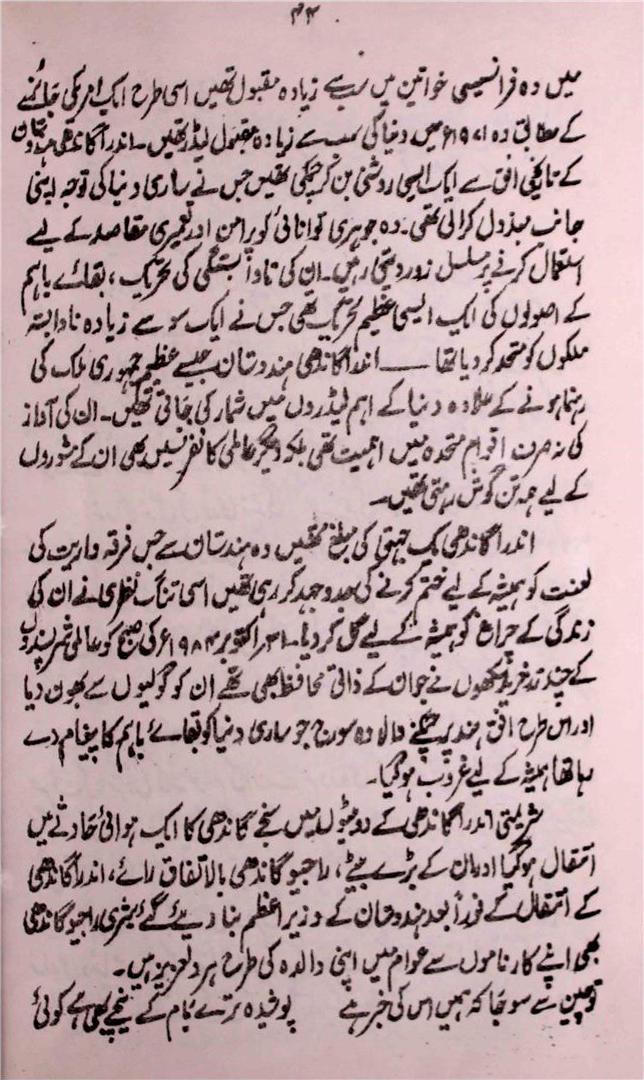 ۴۴
میں وہ فرانسیسی خواتین میں سب سے زیادہ مقبول تھیں اسی طرح ایک امریکی جائزے
کے مطابق وہ ۱۹۷۱ء میں دنیا کی سب سے زیادہ مقبول لیڈر تھیں۔ اندرا گاندھی ہندوستان
کے تاریخی افق سے ایک ایسی روشنی بن کر چمکی تھیں جس نے ساری دنیا کی توجہ اپنی
جانب مبذول کرالی تھی۔ وہ جوہری توانائی کو پرامن اور تعمیری مقاصد کے لیے
استعمال کرنے پر مسلسل زور دیتی رہیں۔ ان کی ناوابستگی کی تحریک، بقائے باہم
کے اصولوں کی ایک ایسی عظیم تحریک تھی جس نے ایک سو سے زیادہ ناوابستہ
ملکوں کو متحد کر دیا تھا ـــــ اندرا گاندھی ہندوستان جیسے عظیم جمہوری ملک کی
رہنما ہونے کے علاوہ دنیا کے اہم لیڈروں میں شمار کی جاتی تھیں۔ ان کی آواز
کی نہ صرف اقوام متحدہ میں اہمیت تھی بلکہ دیگر عالمی کانفرنسیں بھی ان کے مشوروں
کے لیے ہمہ تن گوش رہتی تھیں۔
اندرا گاندھی یک جہتی کی مبلغ تھیں وہ ہندستان سے جس فرقہ واریت کی
لعنت کو ہمیشہ کے لیے ختم کرنے کی جدوجہد کر رہی تھیں اسی تنگ نظری نے ان کی
زندگی کے چراغ کو ہمیشہ کے لیے گل کر دیا۔ ۳۱ اکتوبر ۱۹۸۴ء کی صبح کو عالمی شرپسندوں
کے چند زرخرید سکھوں نے جو ان کے ذاتی محافظ بھی تھے ان کو گولیوں سے بھون دیا
اور اس طرح افق ہند پر چمکنے والا وہ سورج جو ساری دنیا کو بقائے باہم کا پیغام دے
رہا تھا ہمیشہ کے لیے غروب ہو گیا۔
شریمتی اندرا گاندھی کے دو بیٹوں میں سنجے گاندھی کا ایک ہوائی حادثے میں
انتقال ہو گیا اور ان کے بڑے بیٹے، راجیو گاندھی بالاتفاق رائے، اندرا گاندھی
کے انتقال کے فوراً بعد ہندوستان کے وزیر اعظم بنا دیئے گئے شری راجیو گاندھی
بھی اپنے کارناموں سے عوام میں اپنی والدہ کی طرح ہردلعزیز ہیں۔
تو چین سے سو جا کہ ہمیں اس کی خبر ہے پوشیدہ ترے بام کے نیچے بھی ہے کوئی